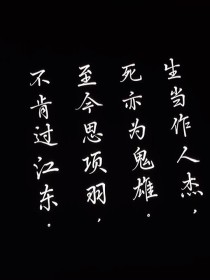 生当作人杰，
死亦为鬼雄。
至今思项羽，
不肯过江东.